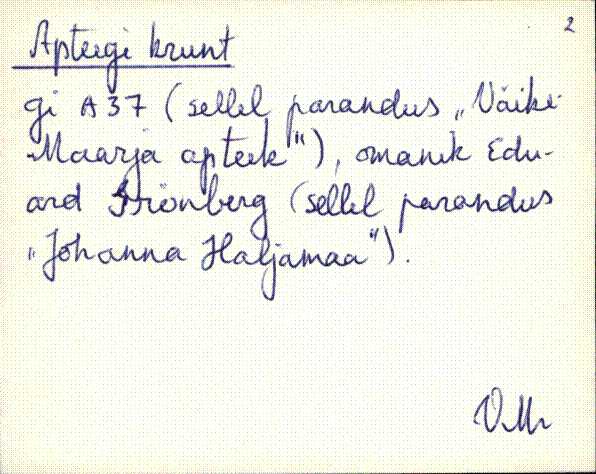 2
Apteegi krunt
gi A37 (sellel parandus „Väike-
Maarja apteek"), omanik Edu-
ard Grönberg (sellel parandus
„Johanna Haljamaa").
VMr